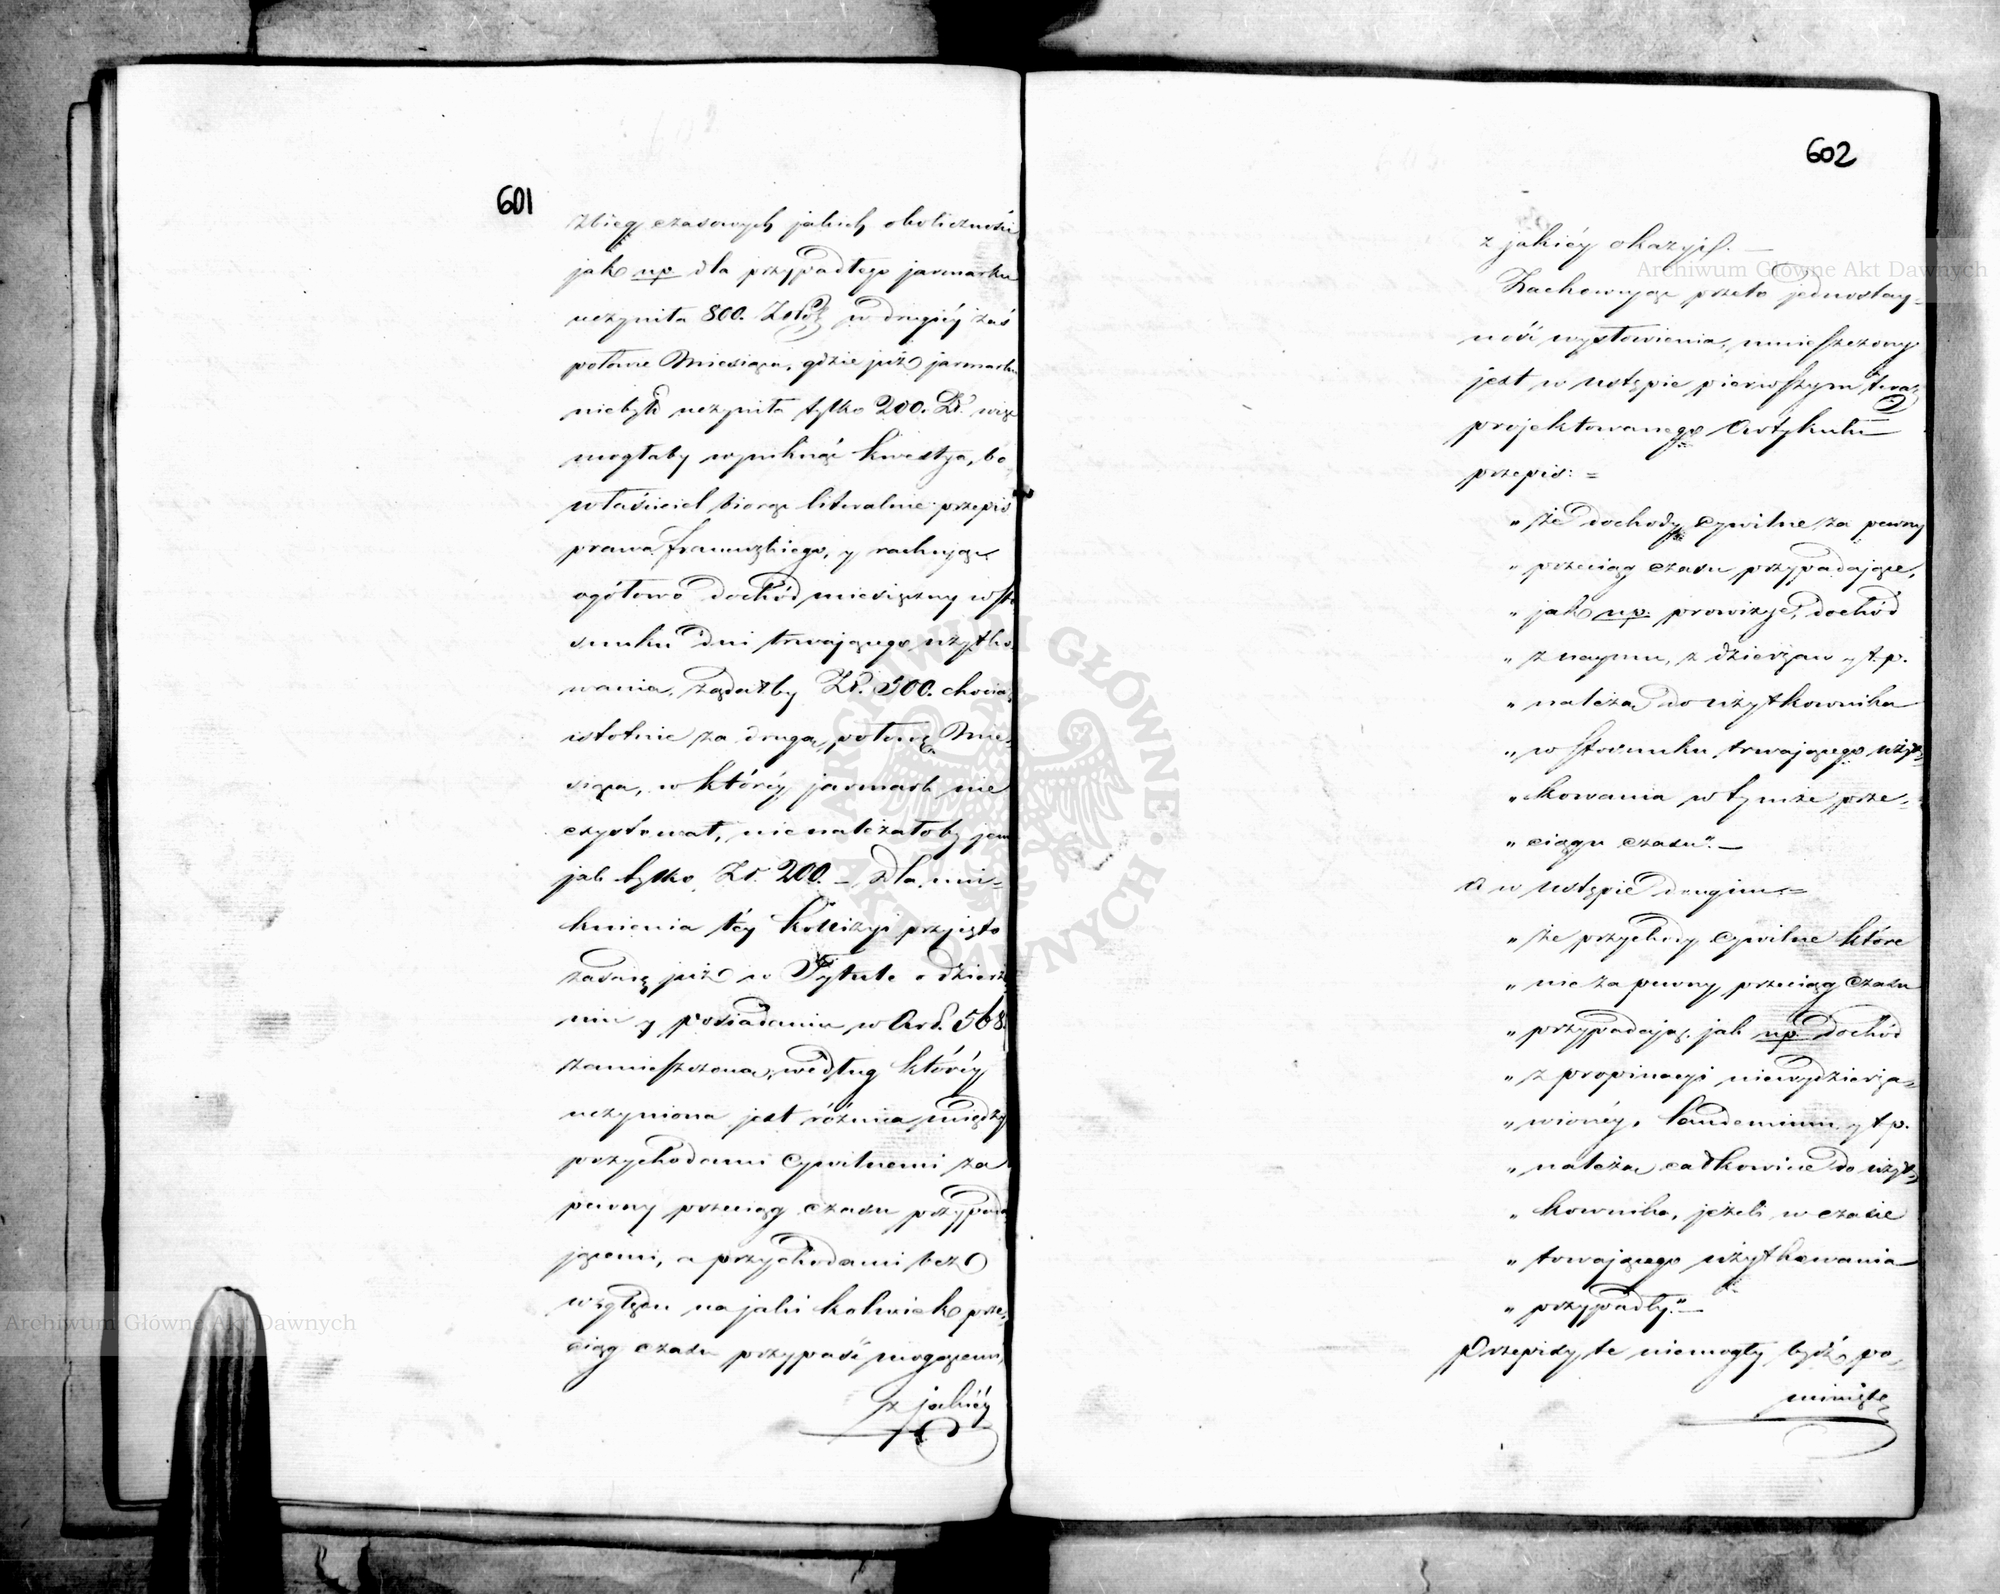 601
zbieg czasowych jakich okoliczności
jako np. dla przypadłego jarmarku
uczyniła 800. Złotych w drugiéy zaś
połowie Miesiąca, gdzie już jarmarku
niebyło uczyniła tylko 200. Zł. więc
mogłaby wyniknąć kwestya, bo
właściciel biorąc literalnie przepis
prawa francuzkiego, y rachując
ogółowo dochód miesięczny w sto
sunku dni trwającego użytko
wania, żądałby Zł. 500. chociaż
istotnie za drugą połowę Mie-
siąca, w któréy jarmark nie
exystował, nie należałoby jemu
jak tylko Zł. 200. – Dla uni-
knienia téy kollizyi przyjęto
zasadę już w Tytule o dzierże
niu y posiadaniu w Art. 568.
zamieszczoną, według któréy
uczyniona jest różnica między
przychodami Cywilnemi za
pewny przeciąg czasu przypada
jącemi, a przychodami bez
względu na jaki kolwiek prze-
ciąg czasu przypaść mogącemi,
z jakiéy
602
z jakiéy okazyi. –
Zachowując przeto jednostay-
ność wysłowienia, umieszczony
jest w ustępie pierwszym teraz
projektowanego Artykułu
przepis: =
„ że dochody cywilne za pewny
„ przeciąg czasu przypadające,
„ jako np. prowizye, dochód
„ z naymu, z dzierżaw y t. p.
„ należą do użytkownika
„ w stosunku trwającego użyt-
„ kowania w tymże prze-
„ ciągu czasu". –
a w ustępie drugim =
„ że przychody cywilne które
„ nie za pewny przeciąg czasu
„ przypadają, jak np. dochód
„ z propinacyi niewydzierża-
„ wionéy, laudemium y t. p.
„ należą całkowicie do użyt-
„ kownika, jeżeli w czasie
„ trwającego użytkowania
„ przypadły." –
Przepisy te niemogły bydź po-
minięte
Archiwum Główne Akt Dawnych
Archiwum Główne Akt Dawnych
ARCHIWUM GŁÓWNE AKT DAWNYCH